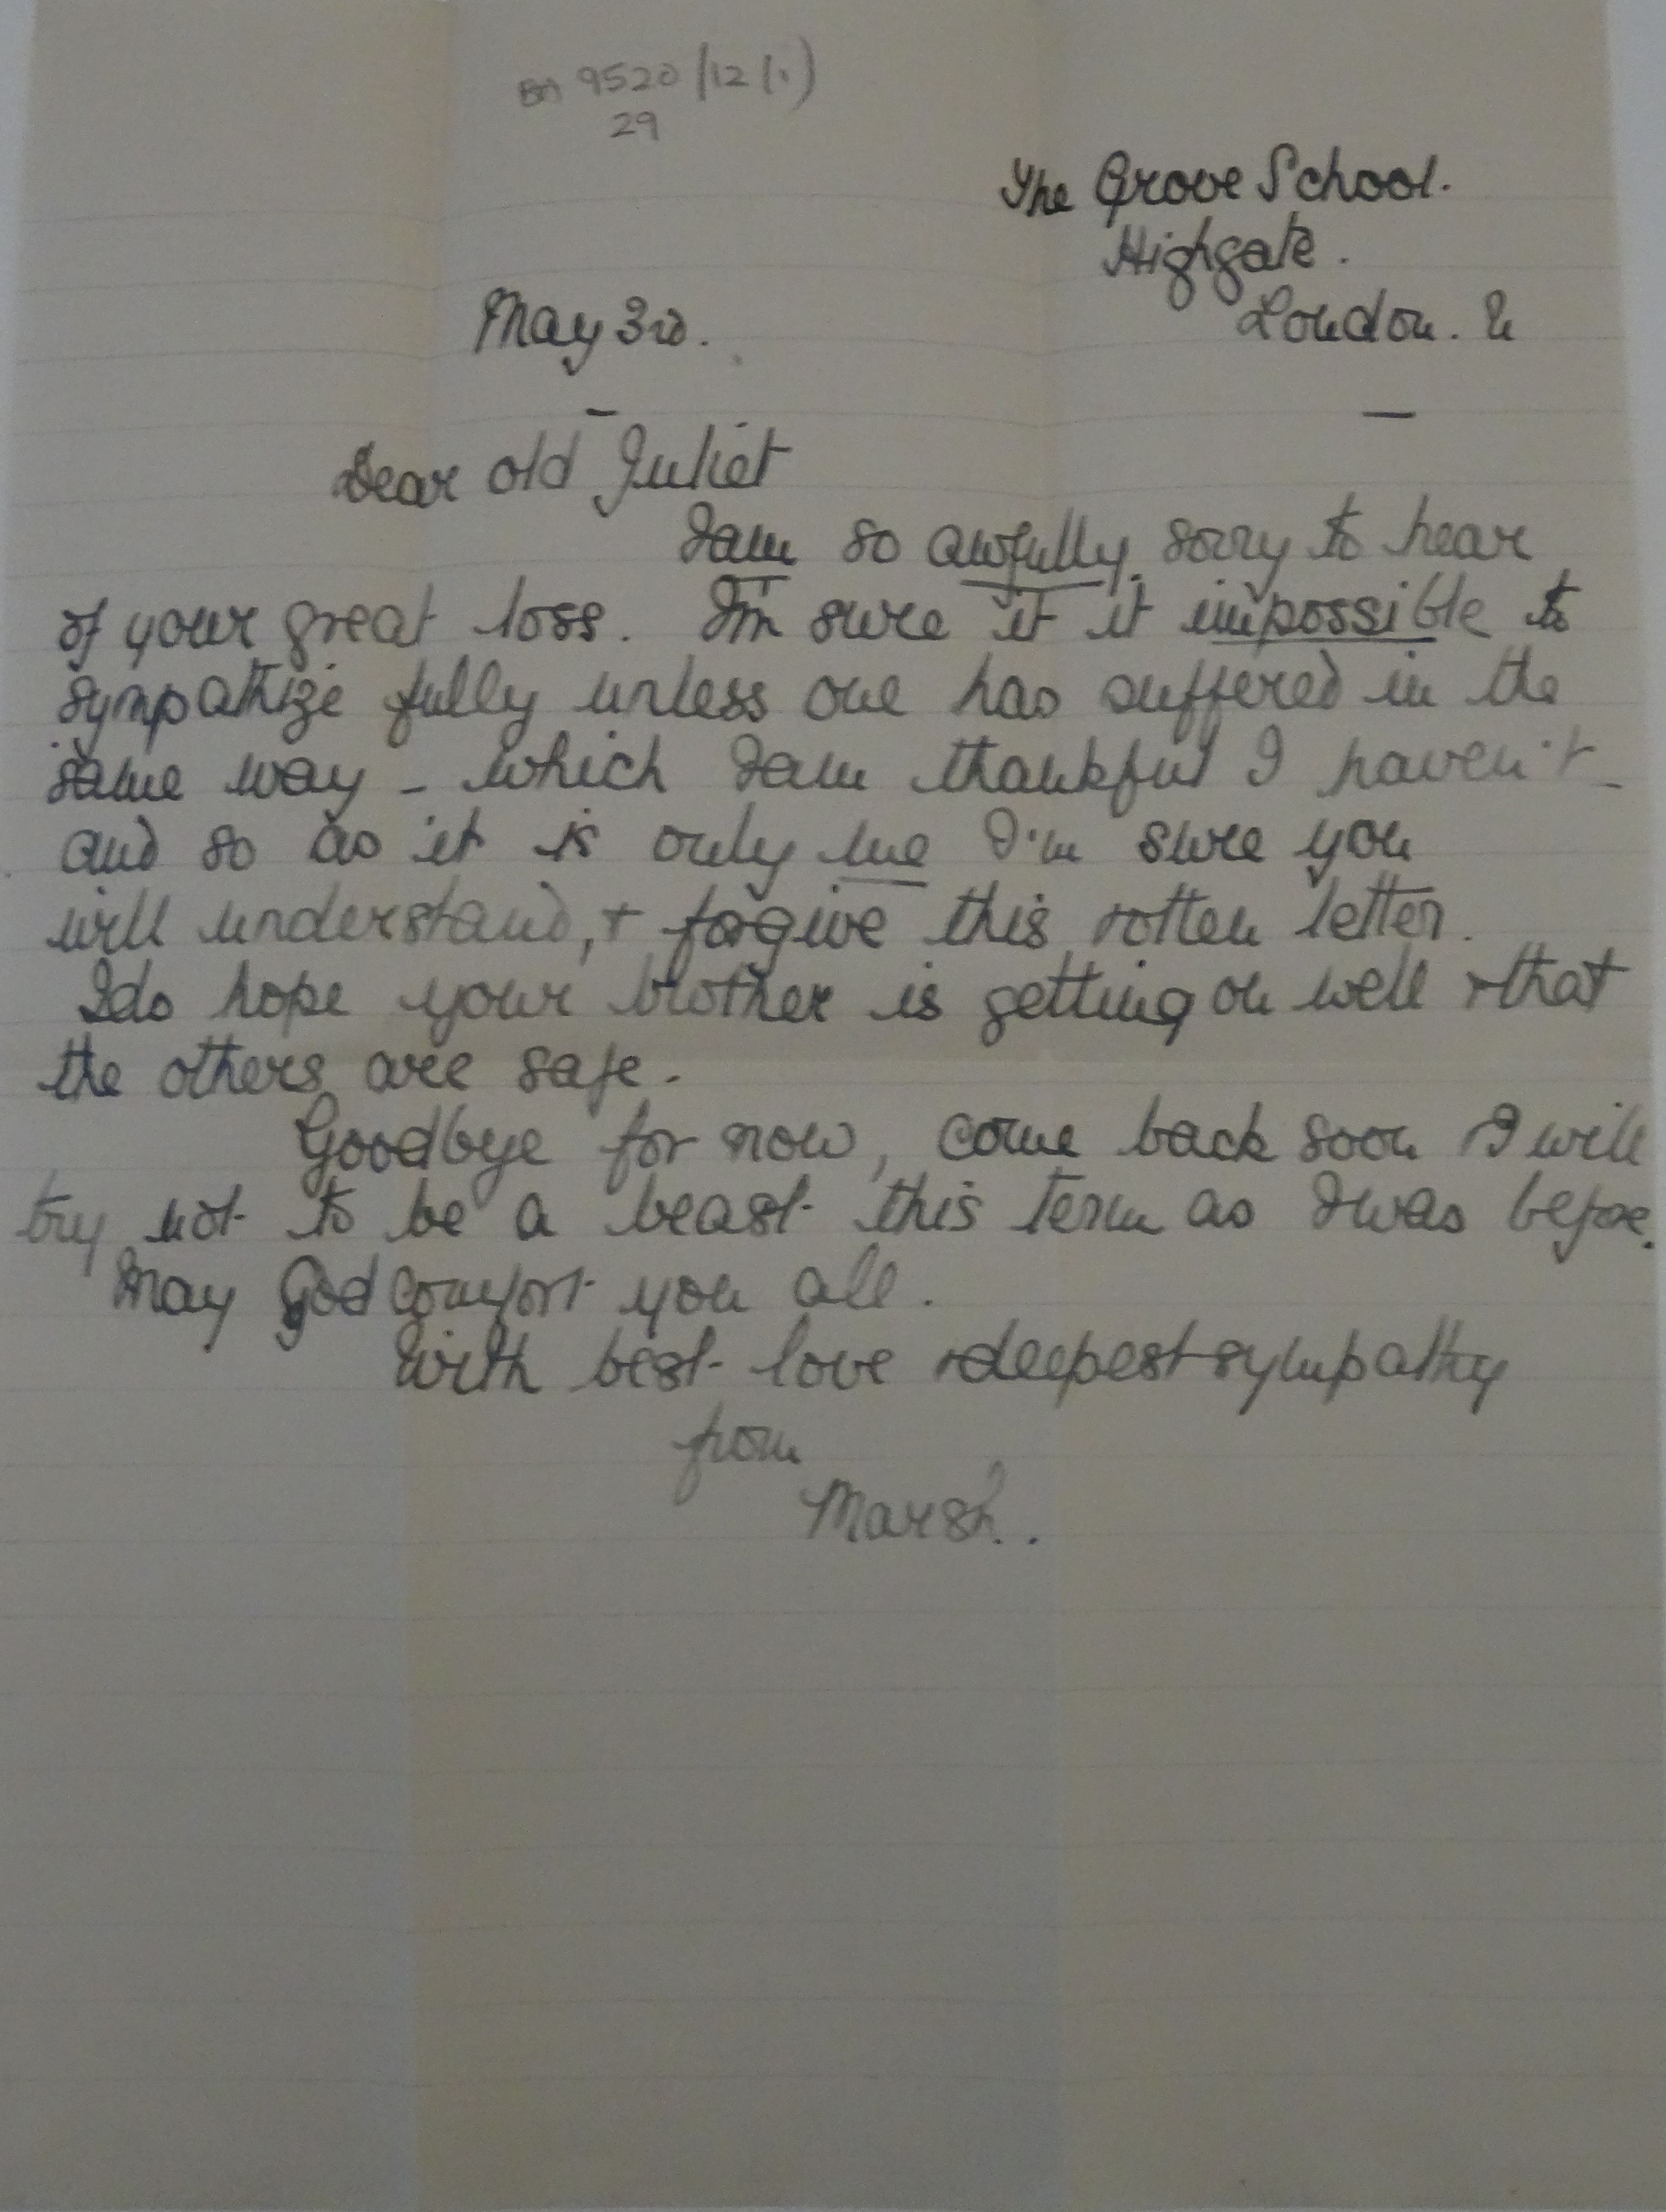 9520/12(1)
29
The Grove School.
Highgate.
May 3rd. London. N
Dear old Juliet
I am so awfully sorry to hear
of your great loss. I'm sure it it impossible to
sympathize fully unless one has suffered in the
same way - which I am thankful I haven't -
and so as it is only me I'm sure you
will understand, + forgive this rotten letter.
I do hope your brother is getting on well + that
the others are safe.
Goodbye for now, come back soon + I will
try not to be a beast this term as I was before.
May God comfort you all.
With best love + deepest sympathy
from
Marsh.